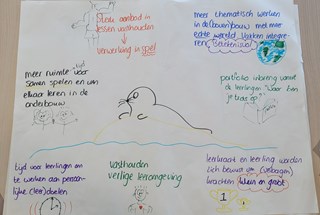 aanbod in
lessen vasthouden
↓
verwerking is spel
meer thematisch werken
in de (boven)bouw met meer
echte wereld. Vakken integre-
ren! Betekenisvol
meer ruimte / tijd voor
samen spelen en van
elkaar leren in de
onderbouw
portfolio inbreng vanuit
de leerlingen "Waar ben
je trots op?"
tijd voor leerlingen om
te werken aan persoon-
lijke (leer)doelen
vasthouden
veilige leeromgeving
leerkracht en leerling worden
zich bewust van (verborgen)
krachten klein en groot
1